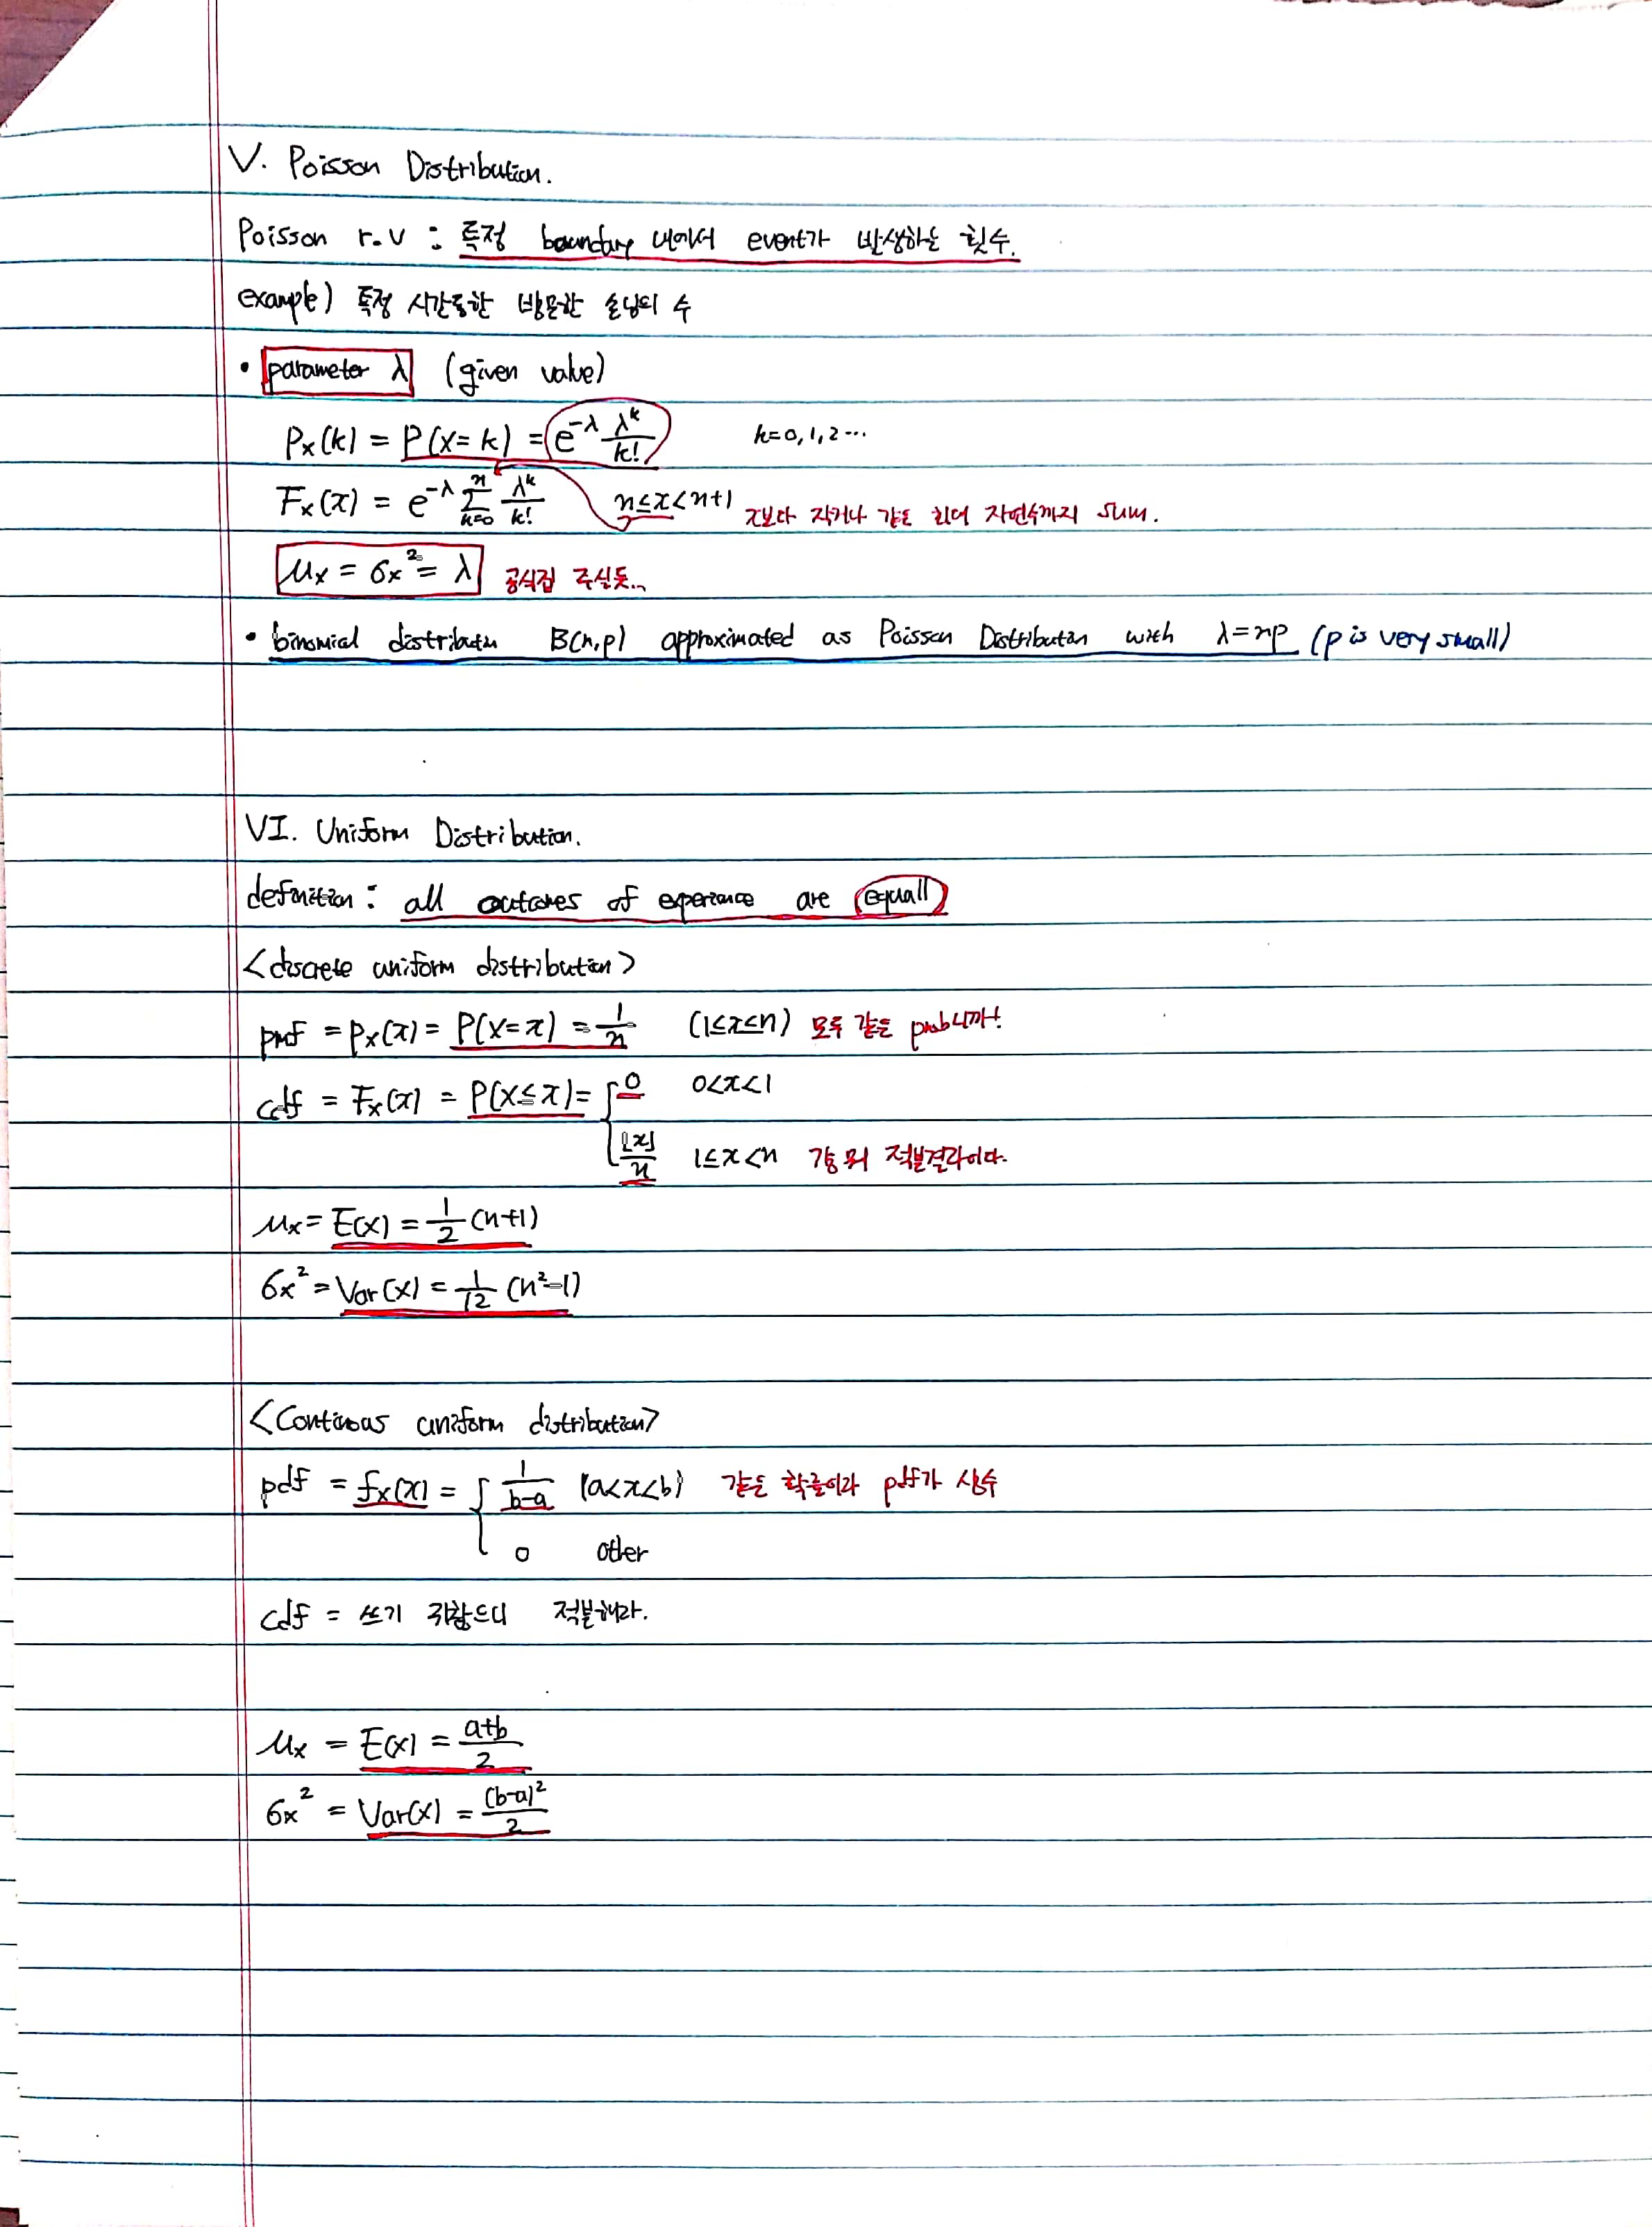 V. Poisson Distribution.
Poisson r.v : 특정 boundary 내에서 event가 발생하는 횟수.
example) 특정 시간동안 방문한 손님의 수
• parameter λ (given value)
Pₓ(k) = P(X=k) = e^-λ λ^k/k! k=0,1,2⋯
Fₓ(x) = e^-λ Σ_{k=0}^{n} λ^k/k! n≤x<n+1 x보다 작거나 같은 최대 자연수까지 sum.
μₓ = σₓ² = λ 공식집 주실듯..
• binomial distributn B(n,p) approximated as Poisson Distributan with λ=np (p is very small)
VI. Uniform Distribution.
definition : all outcomes of experience are equall
<discrete uniform distribution>
pmf = pₓ(x) = P(X=x) = 1/n (1≤x≤n) 모두 같은 prob니까!
cdf = Fₓ(x) = P(X≤x) = { 0 0<x<1
⌊x⌋/n 1≤x<n 걍 뭐 적분결과이다.
μₓ = E(x) = 1/2 (n+1)
σₓ² = Var(x) = 1/12 (n²-1)
<Continous uniform distribution>
pdf = fₓ(x) = { 1/(b-a) (a<x<b) 같은 확률이라 pdf가 상수
0 other
cdf = 쓰기 귀찮으니 적분해라.
μₓ = E(x) = (a+b)/2
σₓ² = Var(x) = (b-a)²/2